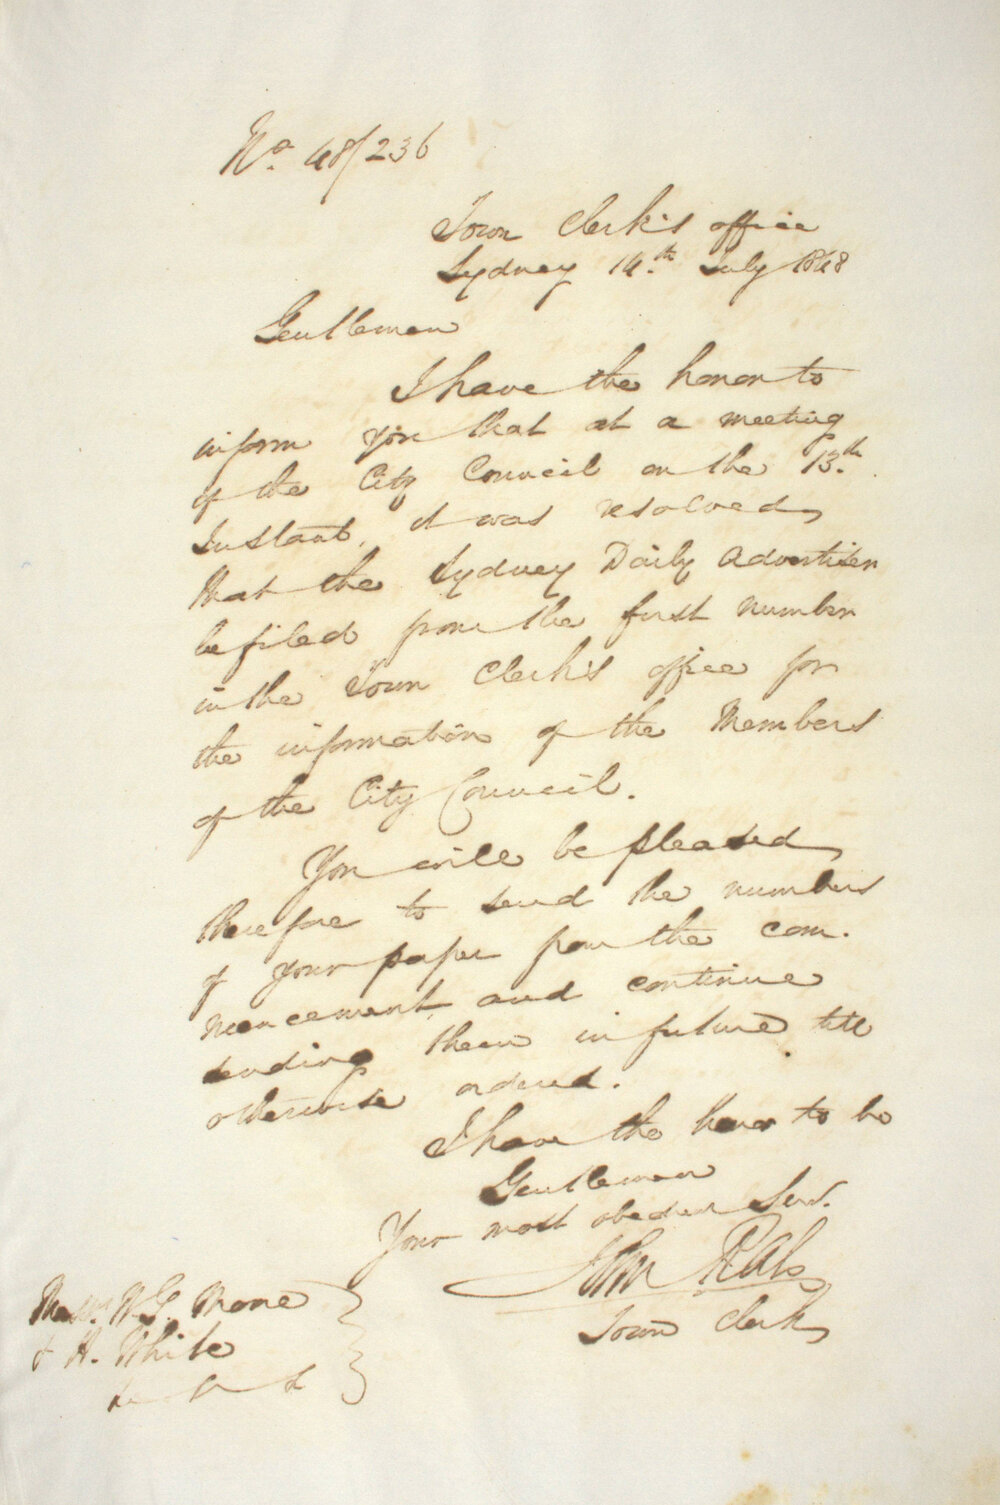 No. 48/236
Town Clerk's office
Sydney 14th July 1848
Gentlemen
I have the honor to
inform you that at a meeting
of the City Council on the 13th.
Instant, it was resolved,
that the Sydney Daily Advertiser
be filed from the first number
in the Town Clerk's office for
the information of the Members
of the City Council.
You will be pleased,
therefore to send the numbers
of your paper from the com-
mencement, and continue
sending them in future till
otherwise ordered.
I have the honor to be
Gentlemen
Your most obedien Serv.
John Rae
Town Clerk
Messrs. W. G. Moore
& H. White